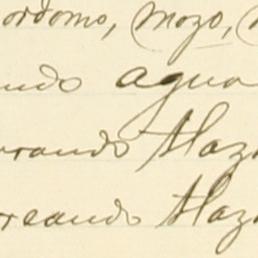 ordomo, Mozo,
ndo agua
rando tlaz
reando tlaz